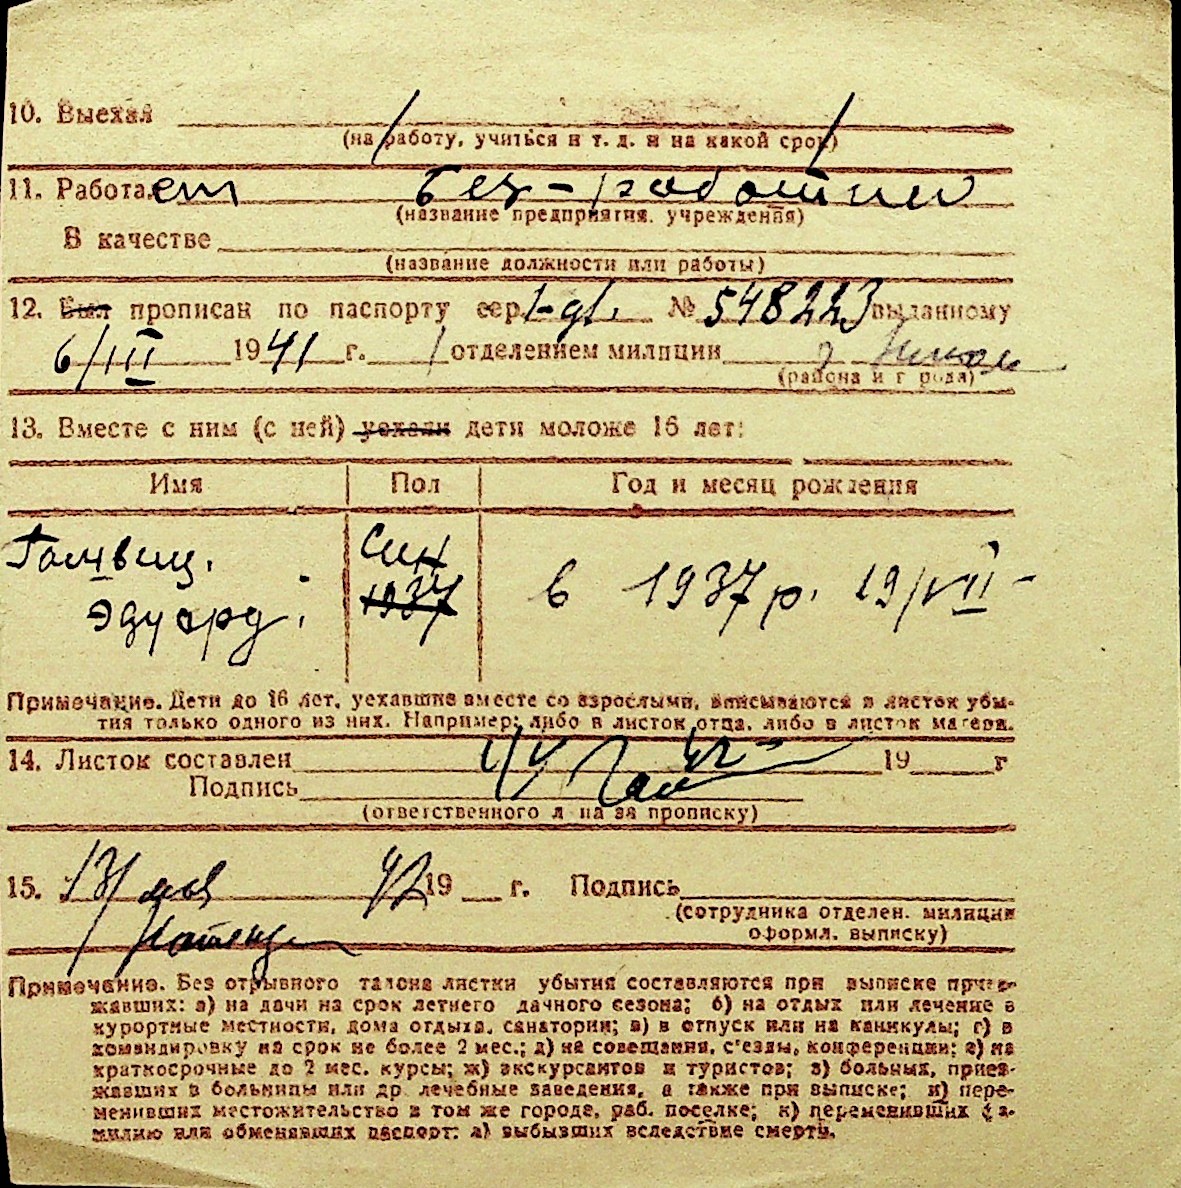 10. Выехал
(на работу, учиться и т. д. и на какой срок)
11. Работает Без-работний
(название предприятия, учреждения)
В качестве
(название должности или работы)
12. Был прописан по паспорту сер. № 548223 выданному
6/III 1941 г. 1 отделением милиции г.
(района и города)
13. Вместе с ним (с ней) уехали дети моложе 16 лет:
Имя Пол Год и месяц рождения
Син
Эдуард. 1937 в 1937 р. 19/VII-
Примечание. Дети до 16 лет, уехавшие вместе со взрослыми, вписываются в листок убы-
тия только одного из них. Например: либо в листок отца, либо в листок матери.
14. Листок составлен 42 19 г
Подпись
(ответственного лица за прописку)
15. 13/ мая 42 19 г. Подпись
(сотрудника отделен. милиции
оформл. выписку)
Примечание. Без отрывного талона листки убытия составляются при выписке приез-
жавших: а) на дачи на срок летнего дачного сезона; б) на отдых или лечение в
курортные местности, дома отдыха, санатории; в) в отпуск или на каникулы; г) в
командировку на срок не более 2 мес.; д) на совещания, с'езды, конференции; е) на
краткосрочные до 2 мес. курсы; ж) экскурсантов и туристов; з) больных, приез-
жавших в больницы или др. лечебные заведения, а также при выписке; и) пере-
менивших местожительство в том же городе, раб. поселке; к) переменивших фа-
милию или обменявших паспорт; л) выбывших вследствие смерти.